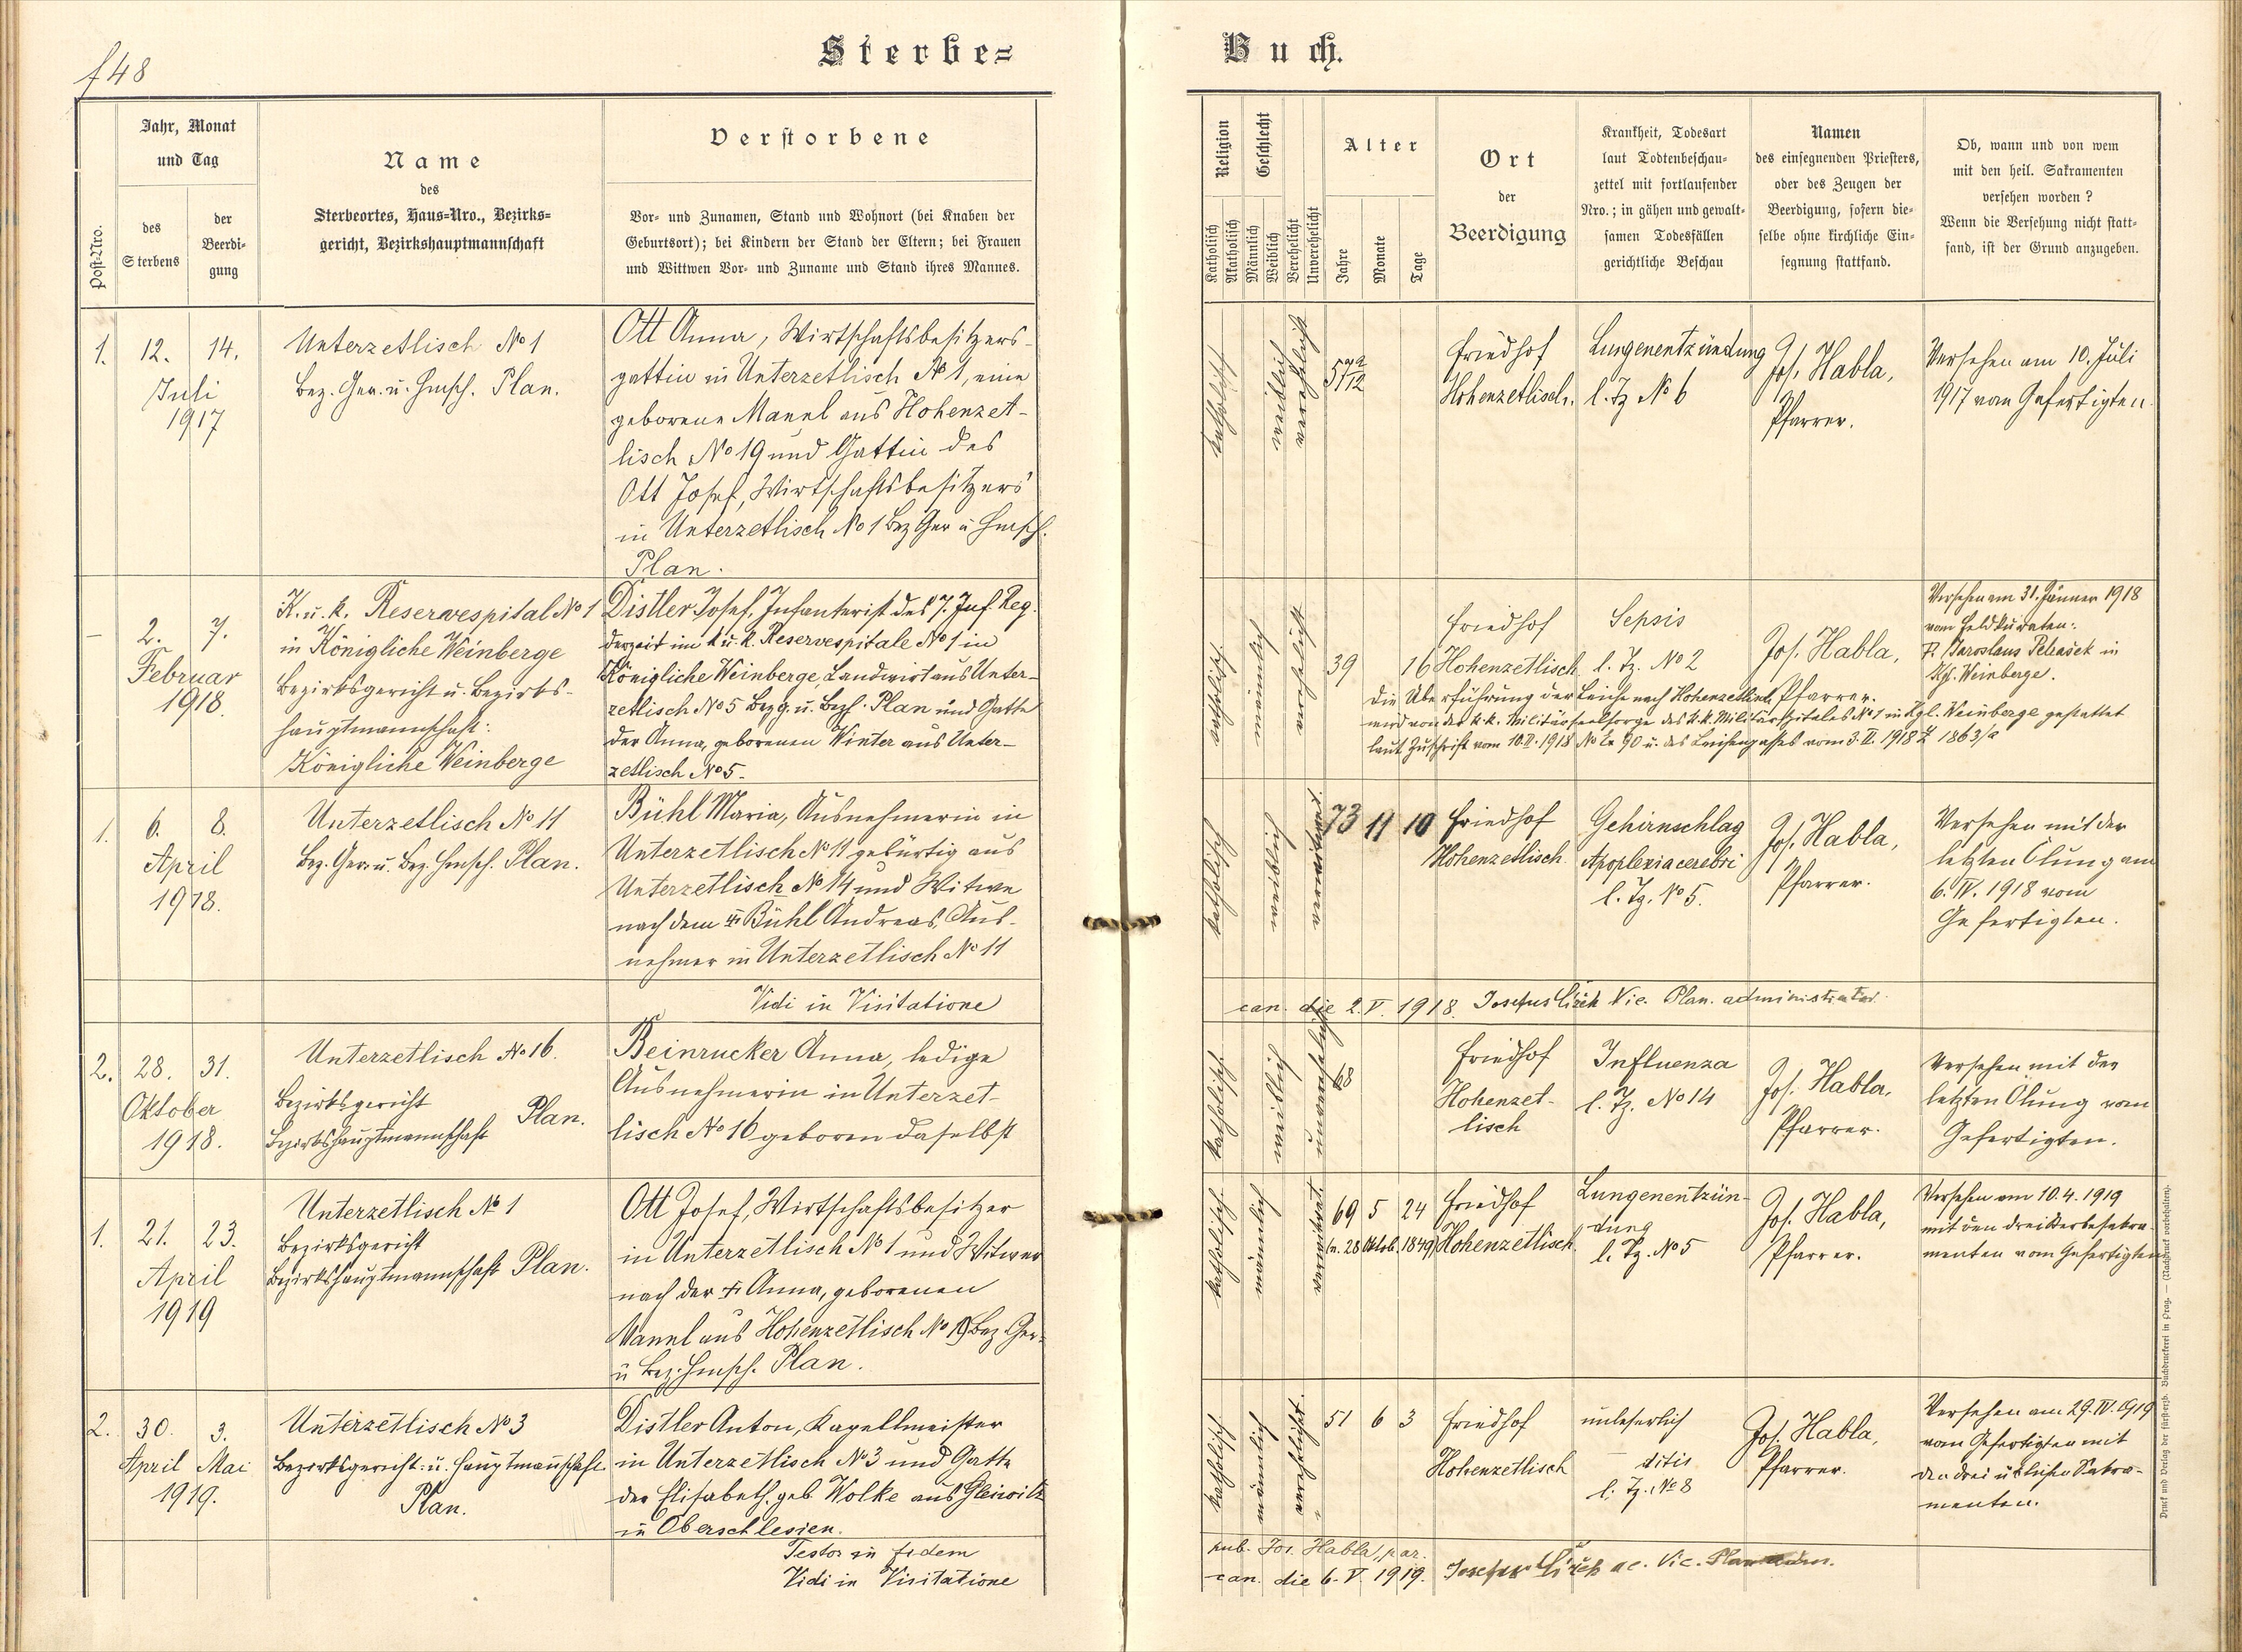 f 48
Sterbe= Buch.
Post-Nro.
Jahr, Monat
und Tag
des
Sterbens
der
Beerdi-
gung
Name
des
Sterbeortes, Haus-Nro., Bezirks-
gericht, Bezirkshauptmannschaft
Verstorbene
Vor- und Zunamen, Stand und Wohnort (bei Knaben der
Geburtsort); bei Kindern der Stand der Eltern; bei Frauen
und Wittwen Vor- und Zuname und Stand ihres Mannes.
Religion
Katholisch
Akatholisch
Geschlecht
Männlich
Weiblich
Verehelicht
Unverehelicht
Alter
Jahre
Monate
Tage
Ort
der
Beerdigung
Krankheit, Todesart
laut Todtenbeschau-
zettel mit fortlaufender
Nro.; in gähen und gewalt-
samen Todesfällen
gerichtliche Beschau
Namen
des einsegnenden Priesters,
oder des Zeugen der
Beerdigung, sofern die-
selbe ohne kirchliche Ein-
segnung stattfand.
Ob, wann und von wem
mit den heil. Sakramenten
versehen worden?
Wenn die Versehung nicht statt-
fand, ist der Grund anzugeben.
1.
12. 14.
Juli
1917
Unterzetlisch No 1
Bez. Ger. u. Hmsch. Plan.
Ott Anna, Wirtschaftsbesitzers-
gattin in Unterzetlisch No 1, eine
geborene Mannl aus Hohenzet-
lisch No 19 und Gattin des
Ott Josef, Wirtschaftsbesitzers
in Unterzetlisch No 1 Bez Ger u Hmsch.
Plan.
katholisch
weiblich
verehelicht
Friedhof
Hohenzetlisch.
Lungenentzündung
l. Tz No 6
Jos. Habla,
Pfarrer.
Versehen am 10. Juli
1917 vom Gefertigten.
–
2. 7.
Februar
1918.
K. u. k. Reservespital No 1
in Königliche Weinberge
Bezirksgericht u. Bezirks-
hauptmannschaft:
Königliche Weinberge
Distler Josef, Infanterist des 7. Inf. Reg.
derzeit im k. u. k. Reservespitale No 1 in
Königliche Weinberge, Landwirt aus Unter-
zetlisch No 5 Bezg. u. Bezh. Plan und Gatte
der Anna, geborenen Winter aus Unter-
zetlisch No 5.
katholisch
männlich
verehelicht
39 16
Friedhof
Hohenzetlisch
Sepsis
l. Tz. No 2
Jos. Habla,
Pfarrer.
Versehen am 31. Jänner 1918
vom Feldkuraten:
P. Jaroslaus Pelcašek in
Kgl. Weinberge.
Die Überführung der Leiche nach Hohenzetlisch
wird von der k.k. Militärseelsorge des k.k. Militärspitales No 1 in Kgl. Weinberge gestattet
laut Zuschrift vom 10.II.1918 No 90 u. des Leichenpasses vom 3.II.1918 Z 1863/a
1.
6. 8.
April
1918.
Unterzetlisch No 11
Bez. Ger. u. Bez. Hmsch. Plan.
Bühl Maria, Ausnehmerin in
Unterzetlisch No 11 gebürtig aus
Unterzetlisch No 14 und Witwe
nach dem † Bühl Andreas, Aus-
nehmer in Unterzetlisch No 11
katholisch
weiblich
verwitwet.
73 11 10
Friedhof
Hohenzetlisch
Gehirnschlag
Apoplexia cerebri
l. Tz. No 5.
Jos. Habla,
Pfarrer.
Versehen mit der
letzten Ölung am
6. IV. 1918 vom
Gefertigten.
Vidi in Visitatione can. die 2. V. 1918. Josephus Vic. Plan. administrator.
2.
28. 31.
Oktober
1918.
Unterzetlisch No 16.
Bezirksgericht
Bezirkshauptmannschaft Plan.
Beinrucker Anna, ledige
Ausnehmerin in Unterzet-
lisch No 16 geboren daselbst
katholisch
weiblich
unverehelicht
68
Friedhof
Hohenzet-
lisch
Influenza
l. Tz. No 14
Jos. Habla,
Pfarrer.
Versehen mit der
letzten Ölung vom
Gefertigten.
1.
21. 23.
April
1919
Unterzetlisch No 1
Bezirksgericht
Bezirkshauptmannschaft Plan.
Ott Josef, Wirtschaftsbesitzer
in Unterzetlisch No 1 und Witwer
nach der † Anna, geborenen
Mannl aus Hohenzetlisch No 19 Bez. Ger-
u Bez. Hmsch. Plan.
katholisch
männlich
verwitwet.
69 5 24
(n. 28 Oktob. 1849)
Friedhof
Hohenzetlisch
Lungenentzün-
dung
l. Tz. No 5
Jos. Habla,
Pfarrer.
Versehen am 10.4.1919
mit den drei Sterbesakra-
menten vom Gefertigten
2.
30. 3.
April Mai
1919.
Unterzetlisch No 3
Bezirksgericht u. Hauptmannschaft
Plan.
Distler Anton, Kapellmeister
in Unterzetlisch No 3 und Gatte
der Elisabeth, geb Wolke aus Gleiwitz
in Oberschlesien.
katholisch
männlich
verehelicht.
51 6 3
Friedhof
Hohenzetlisch
unleserlich
– ditis
l. Tz. No 8
Jos. Habla,
Pfarrer.
Versehen am 29.IV.1919
vom Gefertigten mit
den drei üblichen Sakra-
menten.
Testor in fidem pub. Jos. Habla, par.
Vidi in Visitatione can. die 6. V. 1919.
Druck und Verlag der fürsterzb. Buchdruckerei in Prag. — (Nachdruck vorbehalten).